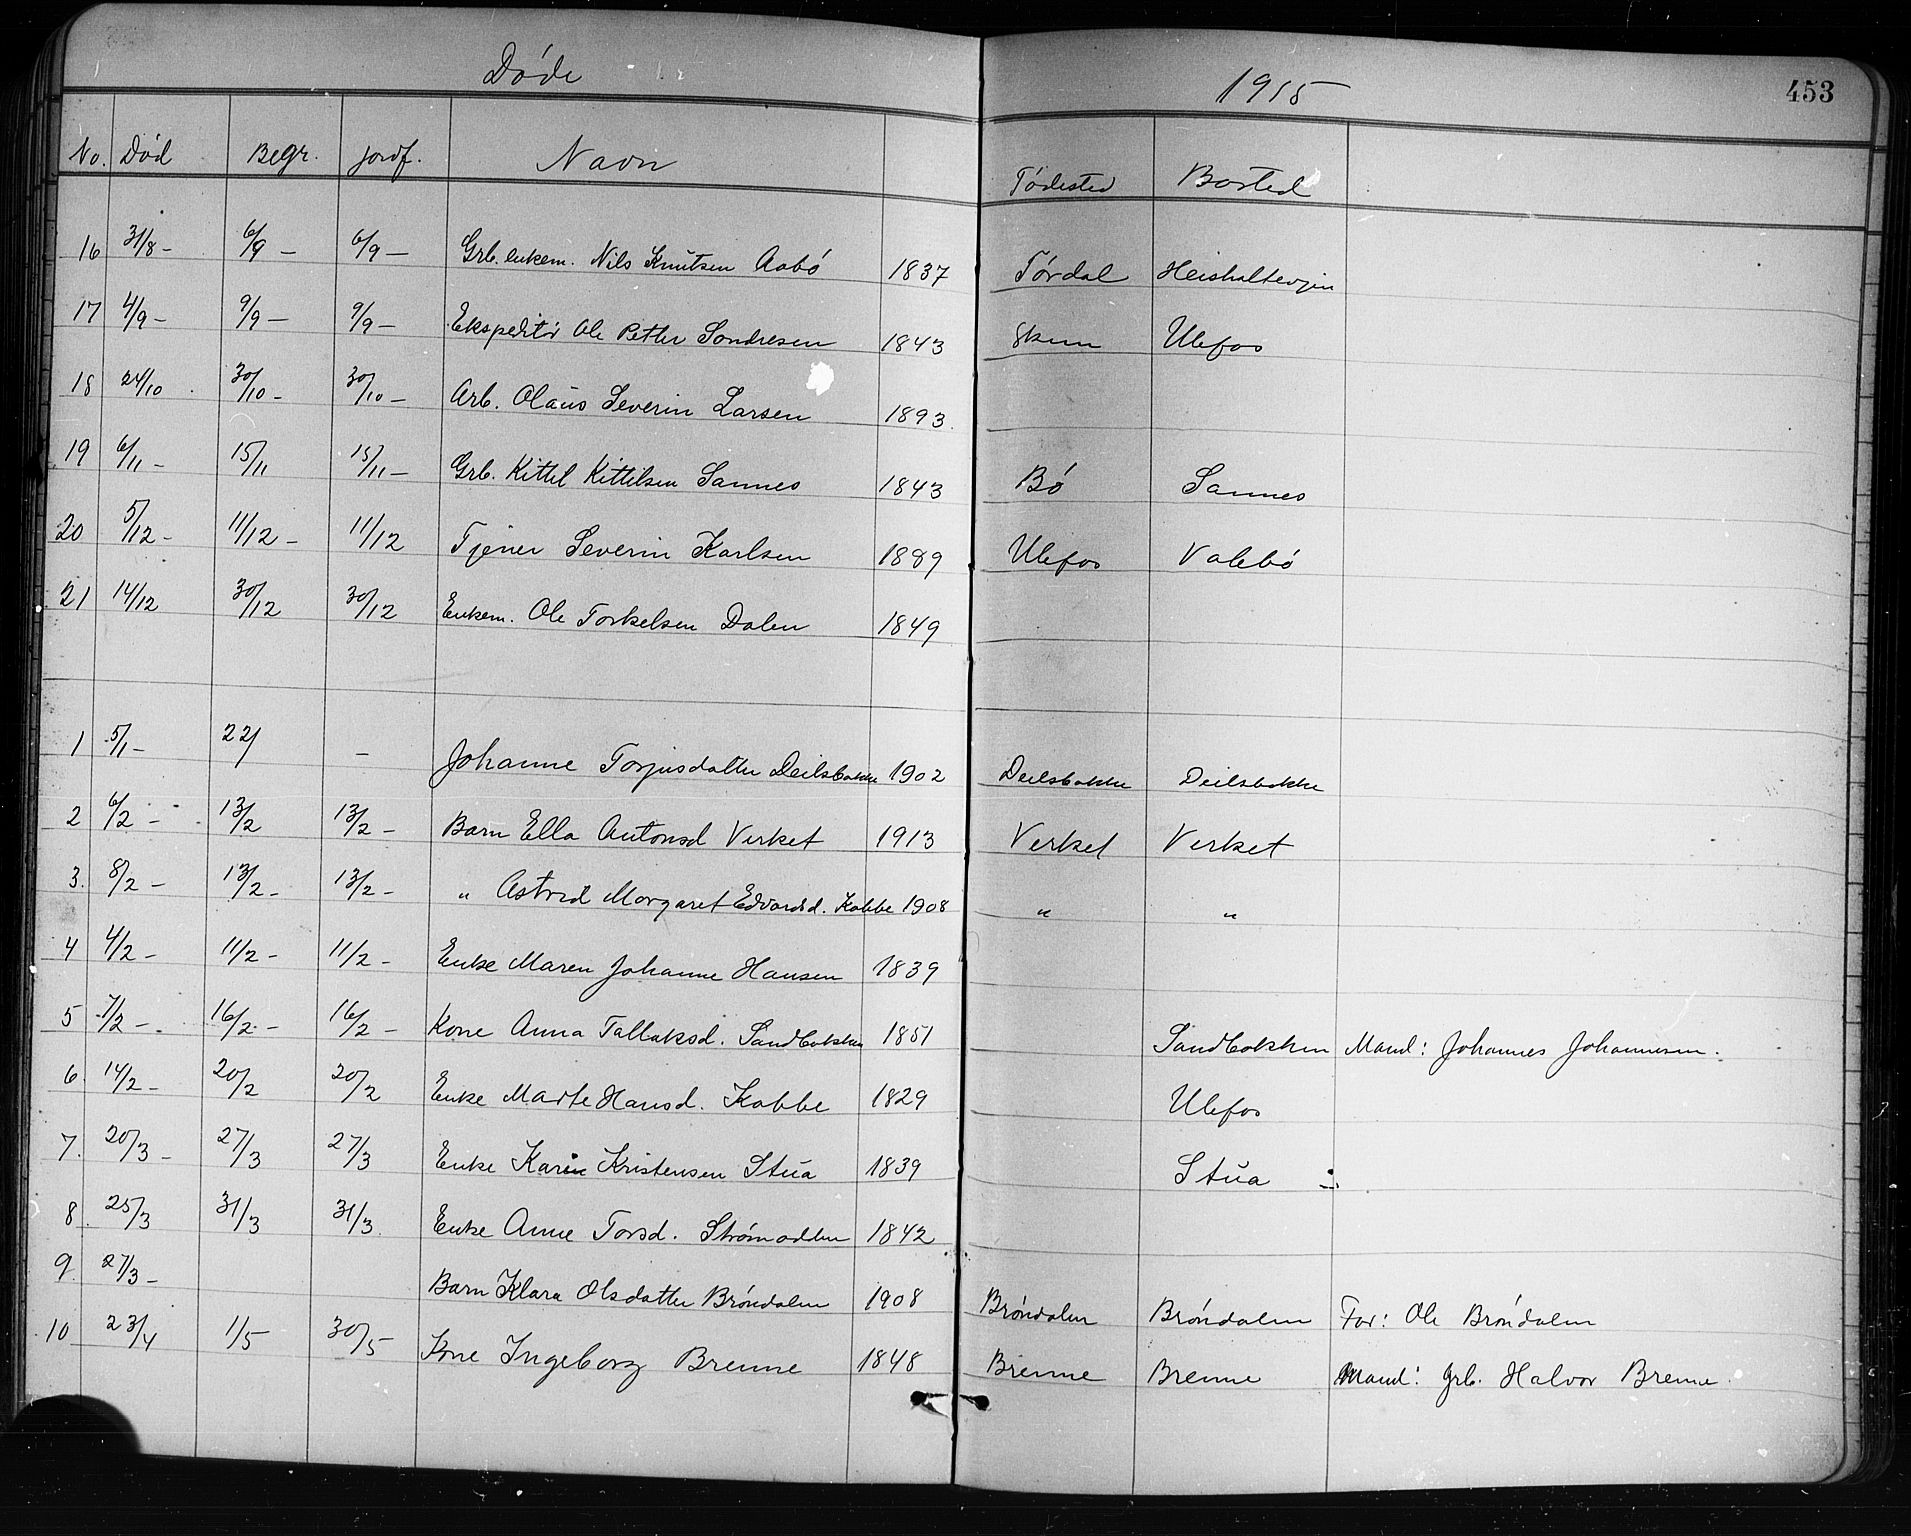 Døde 1915 453
No. Død Begr. jordf. Navn Fødested Bosted
16 31/8 - 6/9 - 6/9 - Grb. enkem. Nils Knutsen Aabø 1837 Tørdal
17 4/9 - 9/9 - 9/9 - Ekspeditør Ole Petter Sondresen 1843 Skien Ulefos
18 24/10 30/10 - 30/10 - Arb. Olaus Severin Larsen 1893
19 6/11 - 15/11 15/11 - Grb. Kittel Kittelsen Sannes 1843 Bø Sannes
20 5/12 - 11/12 - 11/12 Tjener Severin Karlsen 1889 Ulefos Valebø
21 14/12 30/12 30/12 Enkem. Ole Torkelsen Dalen 1849
1 5/1 - 22/ - Johanne Torjusdatter Deilsbakke 1902 Deilsbakke Deilsbakke
2 6/2 - 13/2 13/2 - Barn Ella Antonsd Verket 1913 Verket Verket
3. 8/2 - 13/2 - 13/2 - " Astrid Margaret Edvardsd. Kabbe 1908 " "
4 4/2 - 11/2 - 11/2 - Enke Maren Johanne Hansen 1839
5 7/2 - 16/2 - 16/2 - Kone Anna Tallaksd. Sandbakken 1851 Sandbakken Mand: Johannes Johannesen.
6 14/2 - 20/2 20/2 Enke Marte Hansd. Kabbe 1829 Ulefos
7. 20/3 - 27/3 27/3 Enke Karin Kristensen Stua 1839 Stua
8 25/3 31/3 31/3. Enke Anne Torsd. Strømodden 1842
9 27/3 - Barn Klara Olsdatter Brøndalen 1908 Brøndalen Brøndalen Far: Ole Brøndalen
10 23/4 1/5 30/5 Kone Ingeborg Brenne 1848 Brenne Brenne Mand: grb. Halvor Brenne.